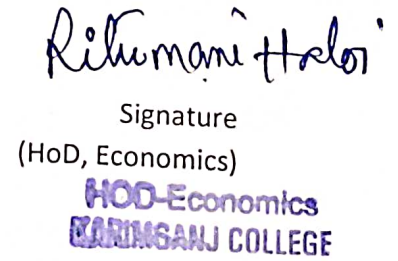 Ritumani Haloi
Signature
(HoD, Economics)
HOD-Economics
KARIMGANJ COLLEGE